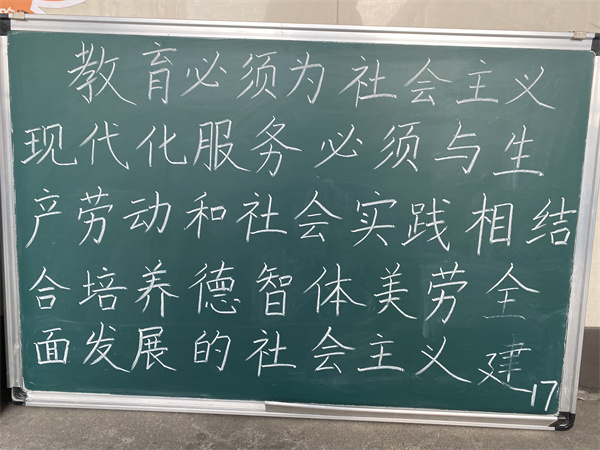 教育必须为社会主义
现代化服务必须与生
产劳动和社会实践相结
合培养德智体美劳全
面发展的社会主义建
17